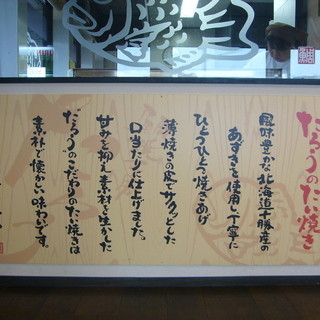 だろうのたい焼き
風味豊かな北海道十勝産の
あずきを使用し丁寧に
ひとつひとつ焼きあげ
薄焼きの皮でサクッとした
口当たりに仕上げました。
甘みを抑え素材を生かした
だろうのこだわりのたい焼きは
素朴で懐かしい味わいです。